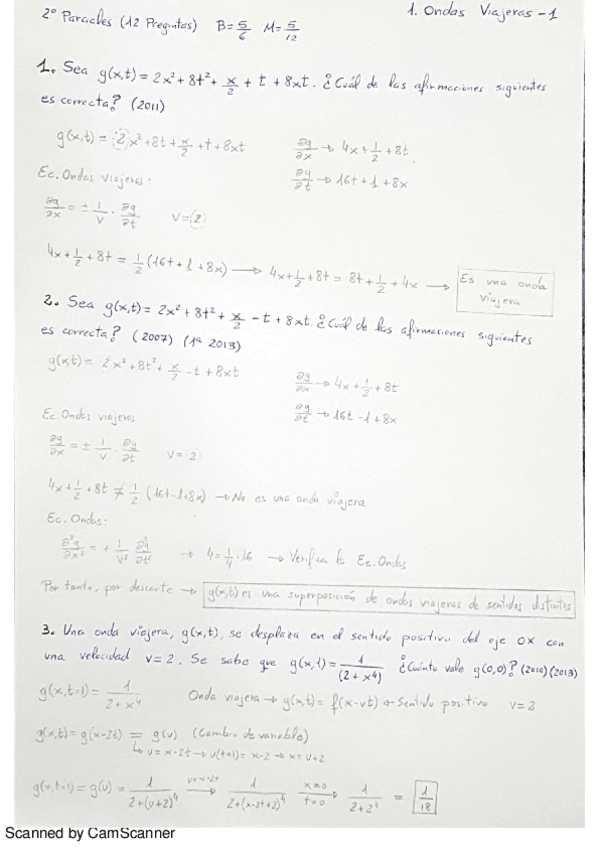 1. Ondas Viajeras - 1
2º Parciales (12 Preguntas) B = 5/6 M = 5/12
1. Sea g(x,t) = 2x² + 8t² + x/2 + t + 8xt. ¿Cuál de las afirmaciones siguientes
es correcta? (2011)
g(x,t) = 2x² + 8t + x/2 + t + 8xt ∂g/∂x → 4x + 1/2 + 8t
Ec. Ondas Viajeras. ∂g/∂t → 16t + 1 + 8x
∂g/∂x = ± 1/V · ∂g/∂t V = 2
4x + 1/2 + 8t = 1/2 (16t + 1 + 8x) → 4x + 1/2 + 8t = 8t + 1/2 + 4x → Es una onda
viajera
2. Sea g(x,t) = 2x² + 8t² + x/2 - t + 8xt. ¿Cuál de las afirmaciones siguientes
es correcta? (2007) (1ª 2013)
g(x,t) = 2x² + 8t² + x/2 - t + 8xt ∂g/∂x → 4x + 1/2 + 8t
∂g/∂t → 16t - 1 + 8x
Ec. Ondas viajeras
∂g/∂x = ± 1/V · ∂g/∂t V = 2
4x + 1/2 + 8t ≠ 1/2 (16t - 1 + 8x) → No es una onda viajera
Ec. Ondas:
∂²g/∂x² = + 1/V² ∂²g/∂t² → 4 = 1/4 · 16 → Verifica la Ec. Ondas
Por tanto, por descarte → g(x,t) es una superposición de ondas viajeras de sentidos distintos
3. Una onda viajera, g(x,t), se desplaza en el sentido positivo del eje OX con
una velocidad v = 2. Se sabe que g(x,1) = 1/(2 + x⁴) ¿Cuánto vale g(0,0)? (2010) (2013)
g(x,t=1) = 1/(2 + x⁴) Onda viajera → g(x,t) = f(x - vt) ← Sentido positivo V = 2
g(x,t) = g(x-2t) = g(u) (Cambio de variable)
↳ u = x - 2t → u(t=1) = x - 2 → x = u + 2
g(x,t=1) = g(u) = 1/(2 + (u+2)⁴) u=x-2t → 1/(2 + (x-2t+2)⁴) x=0 t=0 → 1/(2 + 2⁴) = 1/18
Scanned by CamScanner